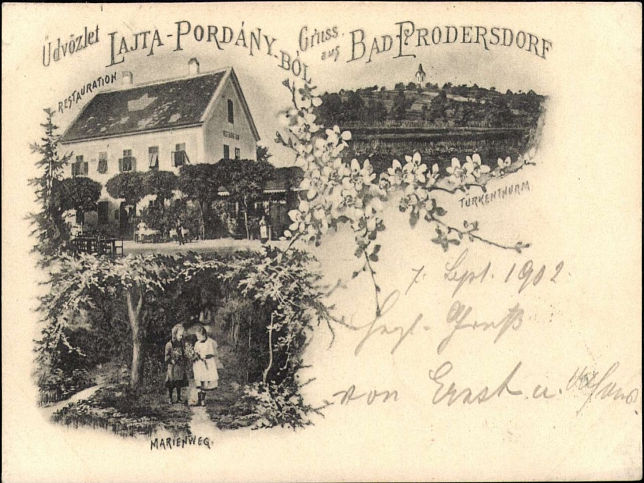 Üdvözlet LAJTA-PORDÁNY-BÓL
Gruss aus BAD PRODERSDORF
RESTAURATION
TÜRKENTHURM
7. Sept. 1902.
Hgl. Gruß
von Ernst u.
MARIENWEG.